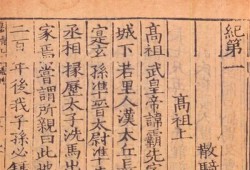 紀第一
散騎
高祖上
高祖武皇帝諱霸先字
城下若里人漢太丘長
寔玄孫準晉太尉準
丞相掾歷太子洗馬出
家焉嘗謂所親曰此地
二百年後我子孫必鍾